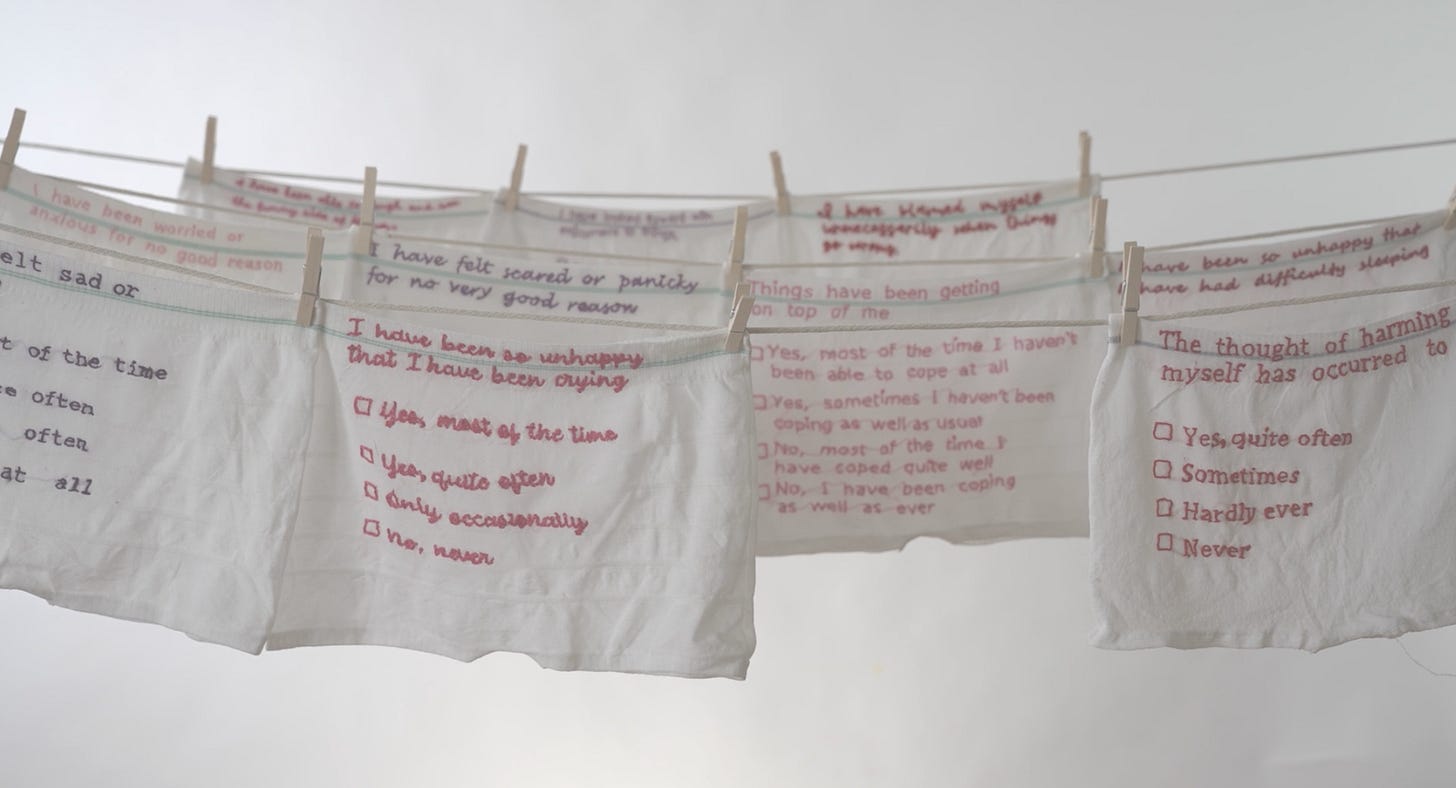 I have been worried or
anxious for no good reason
elt sad or
t of the time
often
often
at all
I have felt scared or panicky
for no very good reason
I have been so unhappy
that I have been crying
Yes, most of the time
Yes, quite often
Only occasionally
No, never
I have blamed myself
unnecessarily when things
Things have been getting
on top of me
Yes, most of the time I haven't
been able to cope at all
Yes, sometimes I haven't been
coping as well as usual
No, most of the time I
have coped quite well
No, I have been coping
as well as ever
have been so unhappy that
have had difficulty sleeping
The thought of harming
myself has occurred to
Yes, quite often
Sometimes
Hardly ever
Never